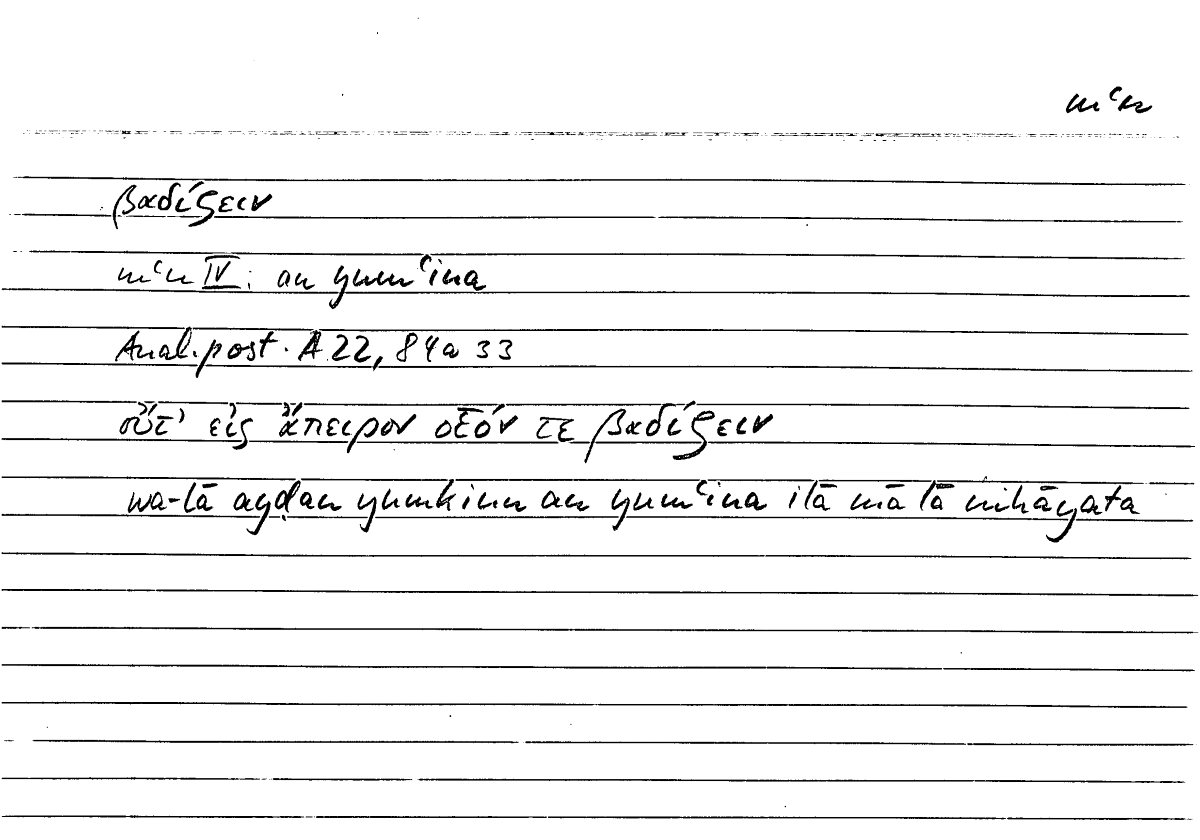 mʿn
βαδίζειν
mʿn IV: an yumʿina
Anal. post. A 22, 84a 33
οὔτ' εἰς ἄπειρον οἷόν τε βαδίζειν
wa-lā ayḍan yumkinu an yumʿina ilā mā lā nihāyata